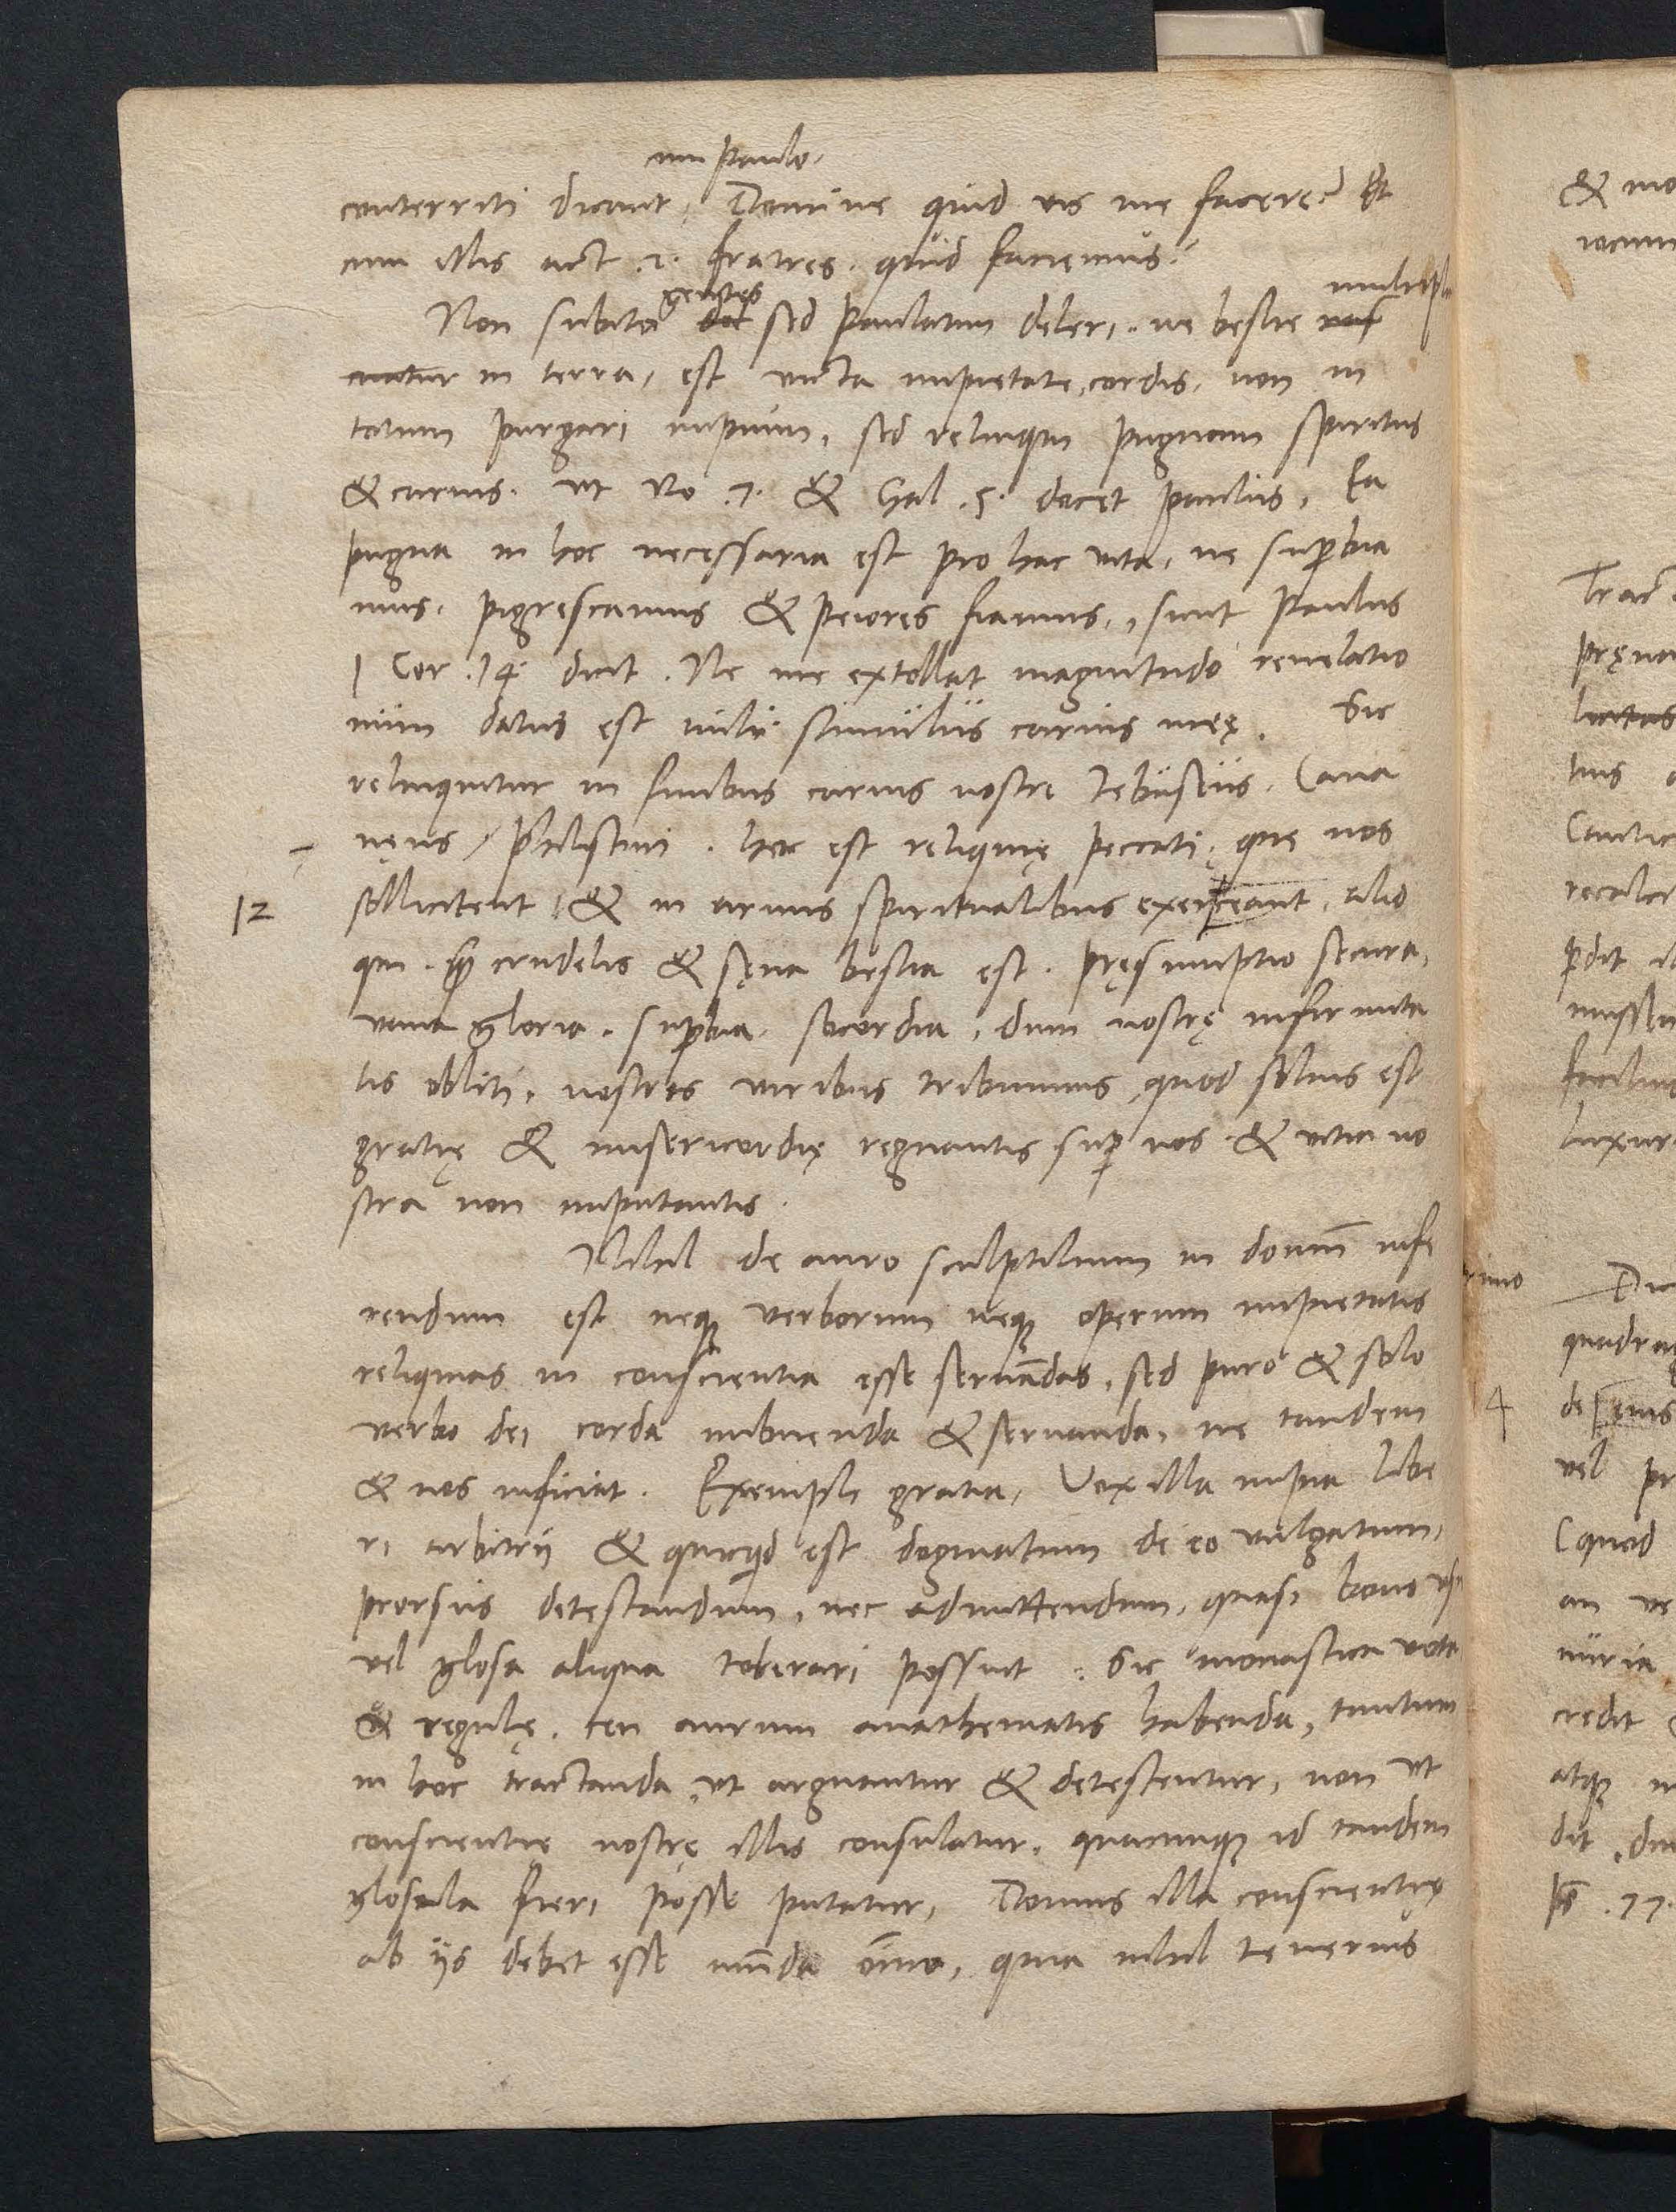 cum paulo.
conterriti dicunt, Domine quid vis me facere? Et
cum illis act .2. fratres. quid faciemus?
gentes multipli
Non subito sed paulatim deleri. ne bestie
in terra, est victa impietate cordis, non in
totum purgari impium, sed relinqui pugnam spiritus
& carnis. ut Ro .7. & Gal .5. docet paulus, Ea
pugna in hoc necessaria est pro hac vita, ne supbia
mus. pigrescamus & peiores fiamus, sicut Paulus
1 Cor .14. dicit. Ne me extollat magnitudo reuelatio
num datus est mihi stimulus carnis meę. Sic
relinquitur in finibus carnis nostrę Iebuseus. Cana
nęus / Philistiim. hoc est reliquię peccati, que nos
12 sollicitent, & in armis spiritualibus exerceant, alio
qui crudelis & sęua bestia est. pręsumptio secura,
vana gloria. supbia. socordia, dum nostrę infirmita
tis obliti, nostris viribus tribuimus, quod solius est
gratię & misericordię regnantis sup nos & vitia no
stra non imputantis.
Nihil de auro sculptilium in domum infe
rendum est neque verborum neque operum impietatis
reliquias in conscientia esse seruandas, sed puro & solo
verbo dei corda imbuenda & seruanda, ne tandem
& nos inficiat. Exempli gratia, Vox illa impia libe
ri arbitrij & quicquid est dogmatum de eo vulgatum,
prorsus detestandum, nec admittendum, quasi bono usu
vel glosa aliqua tolerari possint. Sic monastica vota
& regulę. ceu aurum anathematis habenda, tantum
in hoc tractanda, ut arguantur & detestentur, non ut
conscientię nostrę illis consulatur, quacunque id tandem
glosula fieri posse putatur, Domus illa conscientię
ab ijs debet esse munda omnino, quia nihil tenerius
& mo
Tract
pręua
tuus
Cantic
pdit
Dic
quadrag
4
vel pr
(quod
an ve
nuria
credit
atque
dit, du
ps .77.